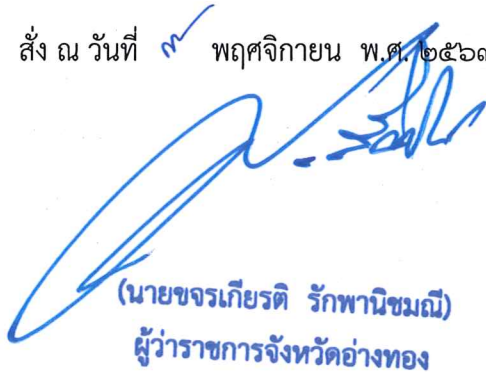 สั่ง ณ วันที่ ๓ พฤศจิกายน พ.ศ. ๒๕๖๓
(นายขจรเกียรติ รักพานิชมณี)
ผู้ว่าราชการจังหวัดอ่างทอง